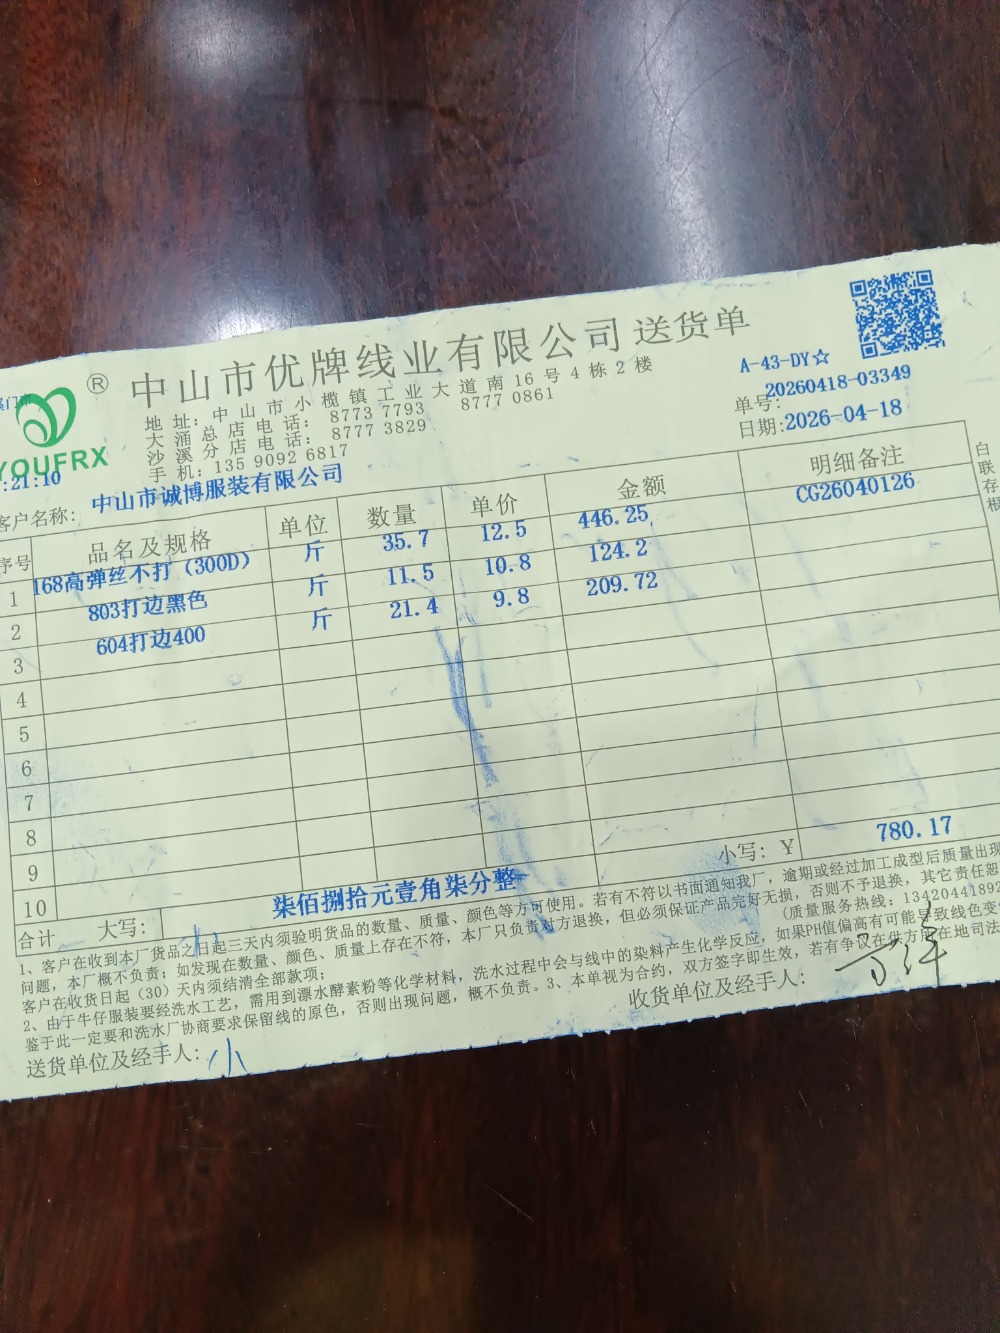 中山市优牌线业有限公司 送货单
®
YOUFRX
地址：中山市小榄镇工业大道南16号4栋2楼
大涌总店电话：8773 7793 8777 0861
沙溪分店电话：8777 3829
手机：135 9092 6817
A-43-DY☆
单号：20260418-03349
日期：2026-04-18
:21:10
客户名称：中山市诚博服装有限公司
序号 品名及规格 单位 数量 单价 金额 明细备注
1 168高弹丝不打（300D） 斤 35.7 12.5 446.25 CG26040126
2 803打边黑色 斤 11.5 10.8 124.2
3 604打边400 斤 21.4 9.8 209.72
4
5
6
7
8
9
10
合计 大写：柒佰捌拾元壹角柒分整 小写：Y 780.17
1、客户在收到本厂货品之日起三天内须验明货品的数量、质量、颜色等方可使用。若有不符以书面通知我厂，逾期或经过加工成型后质量出现
问题，本厂概不负责；如发现在数量、颜色、质量上存在不符，本厂只负责对方退换，但必须保证产品完好无损，否则不予退换，其它责任恕
客户在收货日起（30）天内须结清全部款项； （质量服务热线：1342044189
2、由于牛仔服装要经洗水工艺，需用到漂水酵素粉等化学材料，洗水过程中会与线中的染料产生化学反应，如果PH值偏高有可能导致线色变
鉴于此一定要和洗水厂协商要求保留线的原色，否则出现问题，概不负责。3、本单视为合约，双方签字即生效，若有争议在供方所在地司法
送货单位及经手人：小
收货单位及经手人：
白
联
存
根